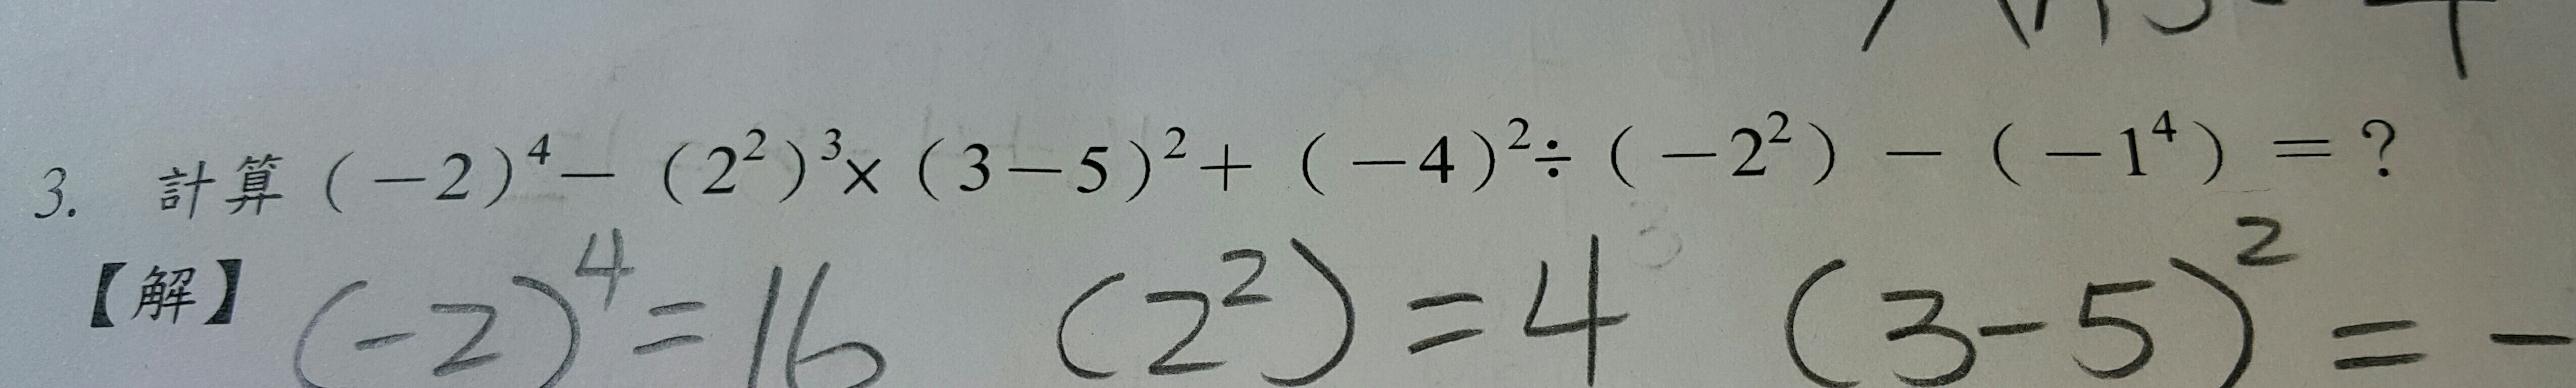 3. 計算 (-2)⁴- (2²)³× (3-5)²+ (-4)²÷ (-2²) - (-1⁴) = ?
【解】 (-2)⁴=16 (2²)=4 (3-5)²=-